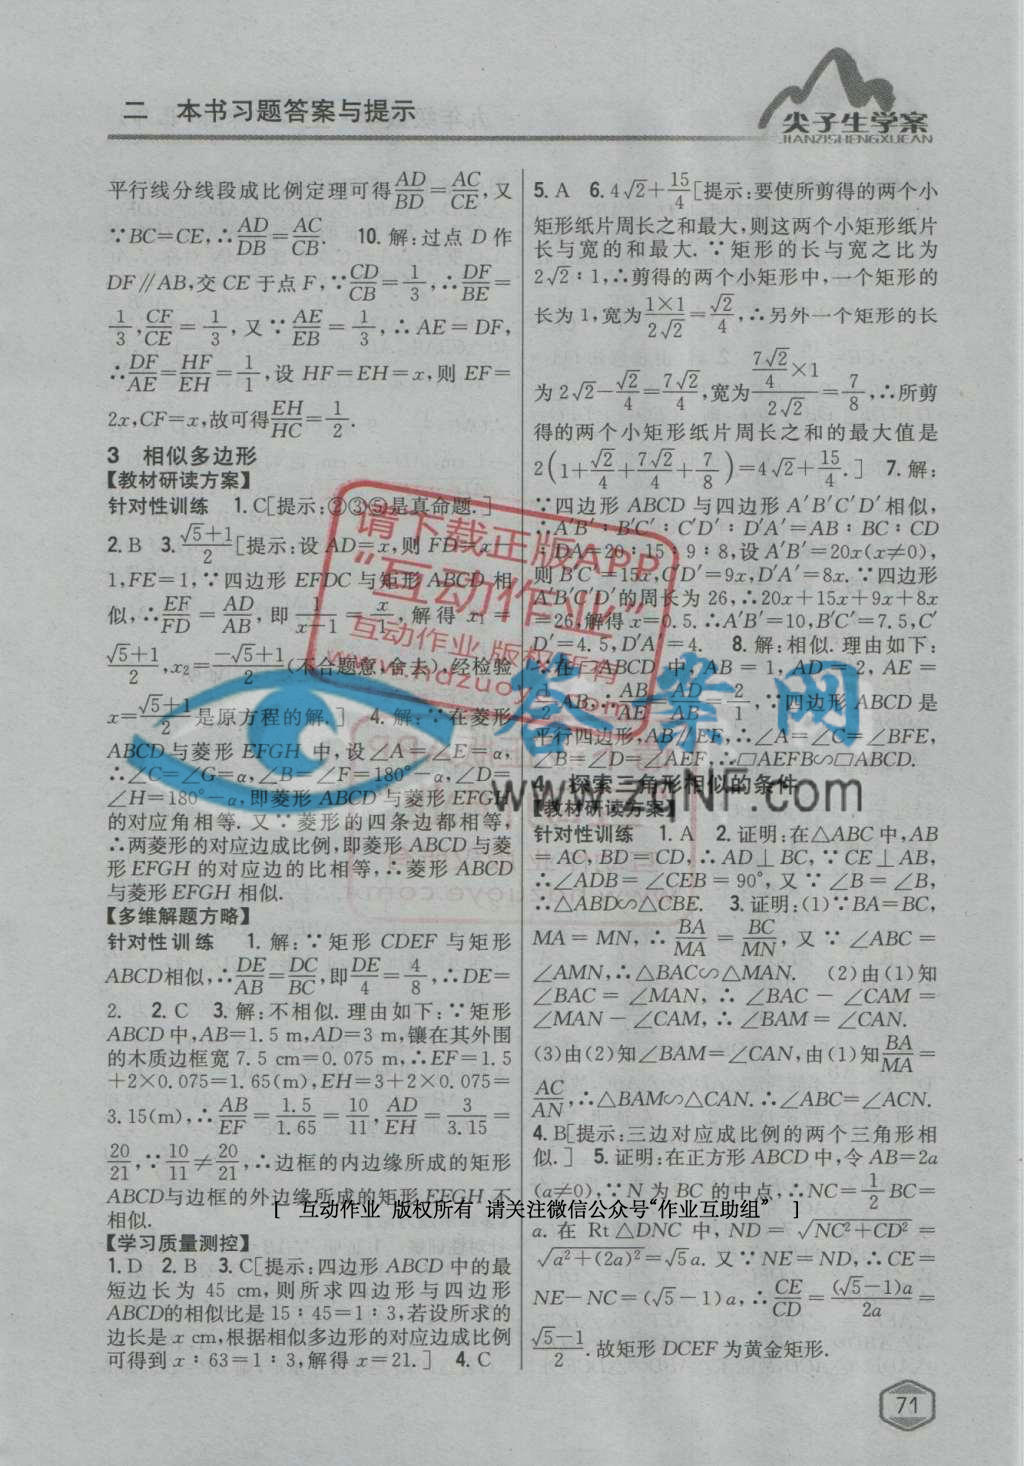 二 本书习题答案与提示
尖子生学案
JIANZISHENGXUEAN
平行线分线段成比例定理可得AD/BD=AC/CE,又
∵BC=CE,∴AD/DB=AC/CB. 10. 解:过点 D 作
DF∥AB,交 CE 于点 F,∵CD/CB=1/3,∴DF/BE=
1/3,CF/CE=1/3,又∵AE/EB=1/3,∴AE=DF,
∴DF/AE=HF/EH=1/1,设 HF=EH=x,则 EF=
2x,CF=x,故可得EH/HC=1/2.
3 相似多边形
【教材研读方案】
针对性训练 1. C[提示:②③⑤是真命题.]
2. B 3. (√5+1)/2[提示:设 AD=x,则 FD=x-
1,FE=1,∵四边形 EFDC 与矩形 ABCD 相
似,∴EF/FD=AD/AB,即1/(x-1)=x/1,解得 x₁=
(√5+1)/2,x₂=(-√5+1)/2(不合题意,舍去),经检验
x=(√5+1)/2是原方程的解.] 4. 解:∵在菱形
ABCD与菱形 EFGH 中,设∠A=∠E=α,
∴∠C=∠G=α,∠B=∠F=180°-α,∠D=
∠H=180°-α,即菱形 ABCD 与菱形 EFGH
的对应角相等. 又∵菱形的四条边都相等,
∴两菱形的对应边成比例,即菱形 ABCD 与菱
形 EFGH 的对应边的比相等,∴菱形 ABCD
与菱形 EFGH 相似.
【多维解题方略】
针对性训练 1. 解:∵矩形 CDEF 与矩形
ABCD相似,∴DE/AB=DC/BC,即DE/4=4/8,∴DE=
2. 2. C 3. 解:不相似. 理由如下:∵矩形
ABCD 中,AB=1.5 m,AD=3 m,镶在其外围
的木质边框宽 7.5 cm=0.075 m,∴EF=1.5
+2×0.075=1.65(m),EH=3+2×0.075=
3.15(m),∴AB/EF=1.5/1.65=10/11,AD/EH=3/3.15=
20/21,∵10/11≠20/21,∴边框的内边缘所成的矩形
ABCD与边框的外边缘所成的矩形 EFGH 不
相似.
【学习质量测控】
1. D 2. B 3. C[提示:四边形 ABCD 中的最
短边长为 45 cm,则所求四边形与四边形
ABCD的相似比是 15∶45=1∶3,若设所求的
边长是 x cm,根据相似多边形的对应边成比例
可得到 x∶63=1∶3,解得 x=21.] 4. C
5. A 6. 4√2+15/4[提示:要使所剪得的两个小
矩形纸片周长之和最大,则这两个小矩形纸片
长与宽的和最大. ∵矩形的长与宽之比为
2√2∶1,∴剪得的两个小矩形中,一个矩形的
长为 1,宽为(1×1)/(2√2)=√2/4,∴另外一个矩形的长
为 2√2-√2/4=7√2/4,宽为(7√2/4×1)/(2√2)=7/8,∴所剪
得的两个小矩形纸片周长之和的最大值是
2(1+√2/4+7√2/4+7/8)=4√2+15/4.] 7. 解:
∵四边形 ABCD 与四边形 A′B′C′D′相似,
∴A′B′∶B′C′∶C′D′∶D′A′=AB∶BC∶CD
∶DA=20∶15∶9∶8,设 A′B′=20x(x≠0),
则 B′C′=15x,C′D′=9x,D′A′=8x. ∵四边形
A′B′C′D′的周长为 26,∴20x+15x+9x+8x
=26,解得 x=0.5. ∴A′B′=10,B′C′=7.5,C′
D′=4.5,D′A′=4. 8. 解:相似. 理由如下:
∵在▱ABCD 中,AB=1,AD=2,AE=
1/2AB,∴AB/AE=AD/AB=2/1,∵四边形 ABCD 是
平行四边形,AB∥EF,∴∠A=∠C=∠BFE,
∠B=∠D=∠AEF,∴▱AEFB∽▱ABCD.
4 探索三角形相似的条件
【教材研读方案】
针对性训练 1. A 2. 证明:在△ABC 中,AB
=AC,BD=CD,∴AD⊥BC,∵CE⊥AB,
∴∠ADB=∠CEB=90°,又∵∠B=∠B,
∴△ABD∽△CBE. 3. 证明:(1)∵BA=BC,
MA=MN,∴BA/MA=BC/MN,又∵∠ABC=
∠AMN,∴△BAC∽△MAN. (2)由(1)知
∠BAC=∠MAN,∴∠BAC-∠CAM=
∠MAN-∠CAM,∴∠BAM=∠CAN.
(3)由(2)知∠BAM=∠CAN,由(1)知BA/MA=
AC/AN,∴△BAM∽△CAN. ∴∠ABC=∠ACN.
4. B[提示:三边对应成比例的两个三角形相
似.] 5. 证明:在正方形 ABCD 中,令 AB=2a
(a≠0),∵N 为 BC 的中点,∴NC=1/2BC=
a. 在 Rt△DNC 中,ND=√(NC²+CD²)=
√(a²+(2a)²)=√5a. 又∵NE=ND,∴CE=
NE-NC=(√5-1)a,∴CE/CD=(√5-1)a/2a=
(√5-1)/2. 故矩形 DCEF 为黄金矩形.
请下载正版APP
“互动作业”
互动作业 版权所有
答案网
www.zqNF.com
[ 互动作业 版权所有 请关注微信公众号“作业互助组” ]
71